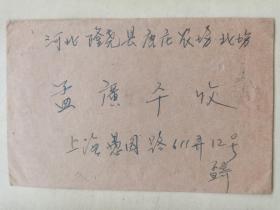 河北隆尧县唐庄农场北场
孟廣千收
上海愚园路611弄12号